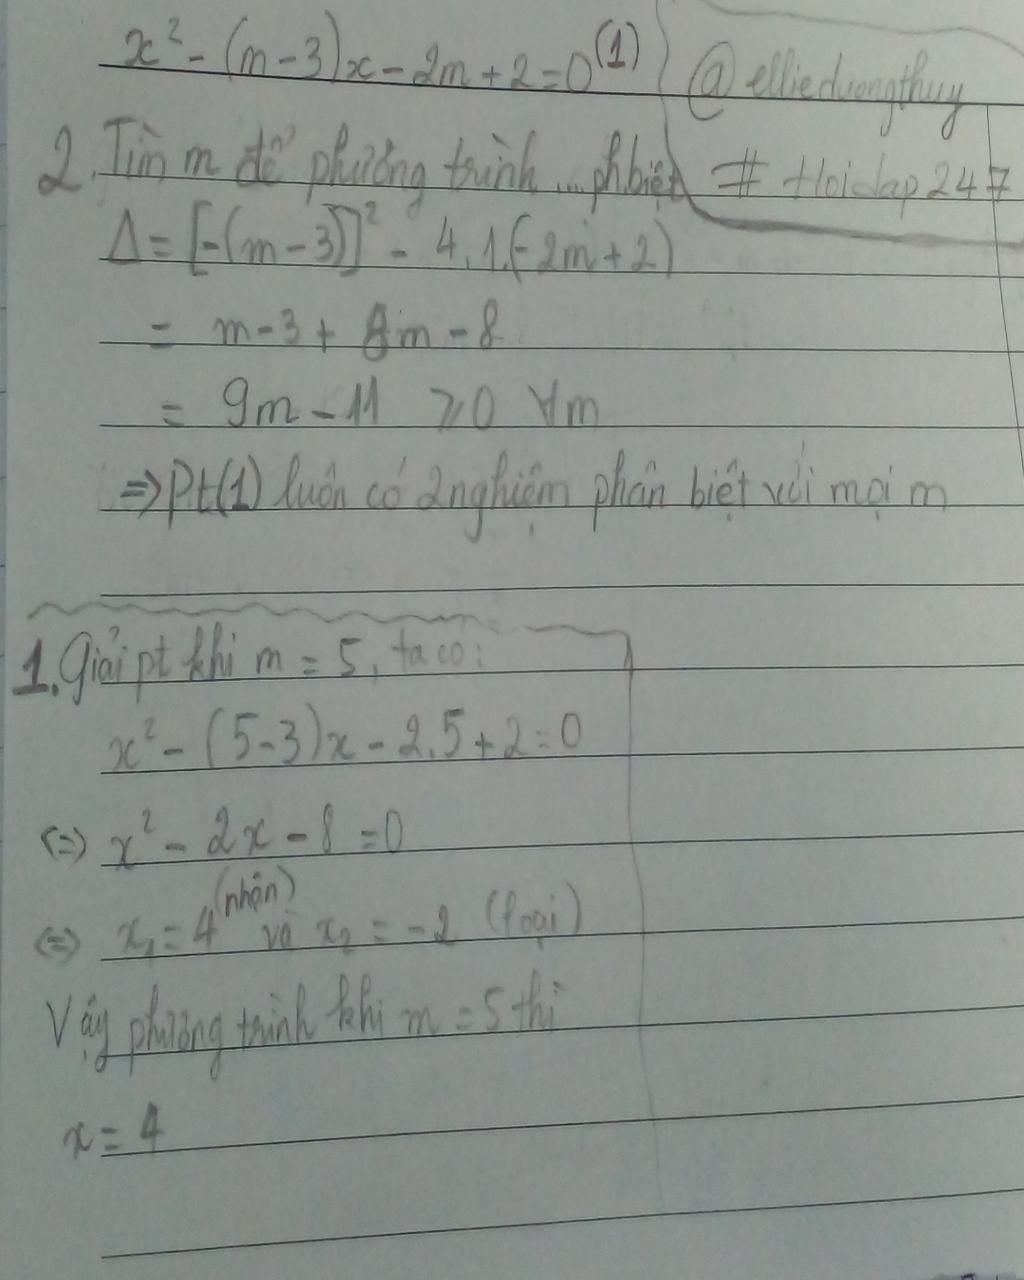 x² - (m-3)x - 2m + 2 = 0 (1)
@ellieduongthuy
2. Tìm m để phương trình ... ph.biệt
# Hoidap247
Δ = [-(m-3)]² - 4.1.(-2m+2)
= m-3 + 8m - 8
= 9m - 11 ⩾0 ∀m
=> Pt(1) luôn có 2 nghiệm phân biệt với mọi m
1. Giải pt khi m = 5, ta có:
x² - (5-3)x - 2.5 + 2 = 0
(=) x² - 2x - 8 = 0
(=) x₁ = 4 (nhận) và x₂ = -2 (loại)
Vậy phương trình khi m = 5 thì
x = 4